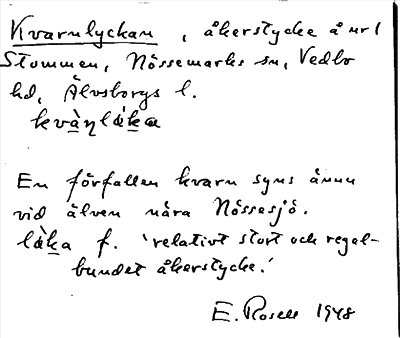 Kvarnlyckan, åkerstycke å nr 1
Stommen, Nössemarks sn, Vedbo
hd, Älvsborgs l.
kvàɳláka
En förfallen kvarn syns ännu
vid älven nära Nössesjö.
láka f. 'relativt stort och regel-
bundet åkerstycke.'
E. Rosell 1948